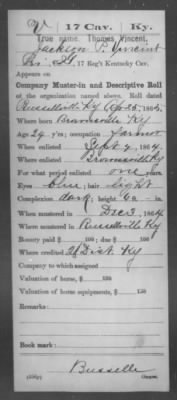 V | 17 Cav. | Ky.
True name, Thomas Vincent,
Jackson P. Vincent
17 Reg't Kentucky Cav.
Appears on
Company Muster-in and Descriptive Roll
of the organization named above. Roll dated
Russellville Ky Apr 25, 1865.
Where born Brownsville Ky
Age 29 y'rs; occupation farmer
When enlisted Sept 7, 1864.
Where enlisted Brownsville Ky
For what period enlisted one years.
Eyes blue; hair light
Complexion dark; height 6 ft. in.
When mustered in Dec 3, 1864
Where mustered in Russellville Ky
Bounty paid $ 100; due $ 100
Where credited 2 Dist. Ky
Company to which assigned
Valuation of horse, $ 100
Valuation of horse equipments, $ 100
Remarks:
Book mark:
Busselle
Copyist.